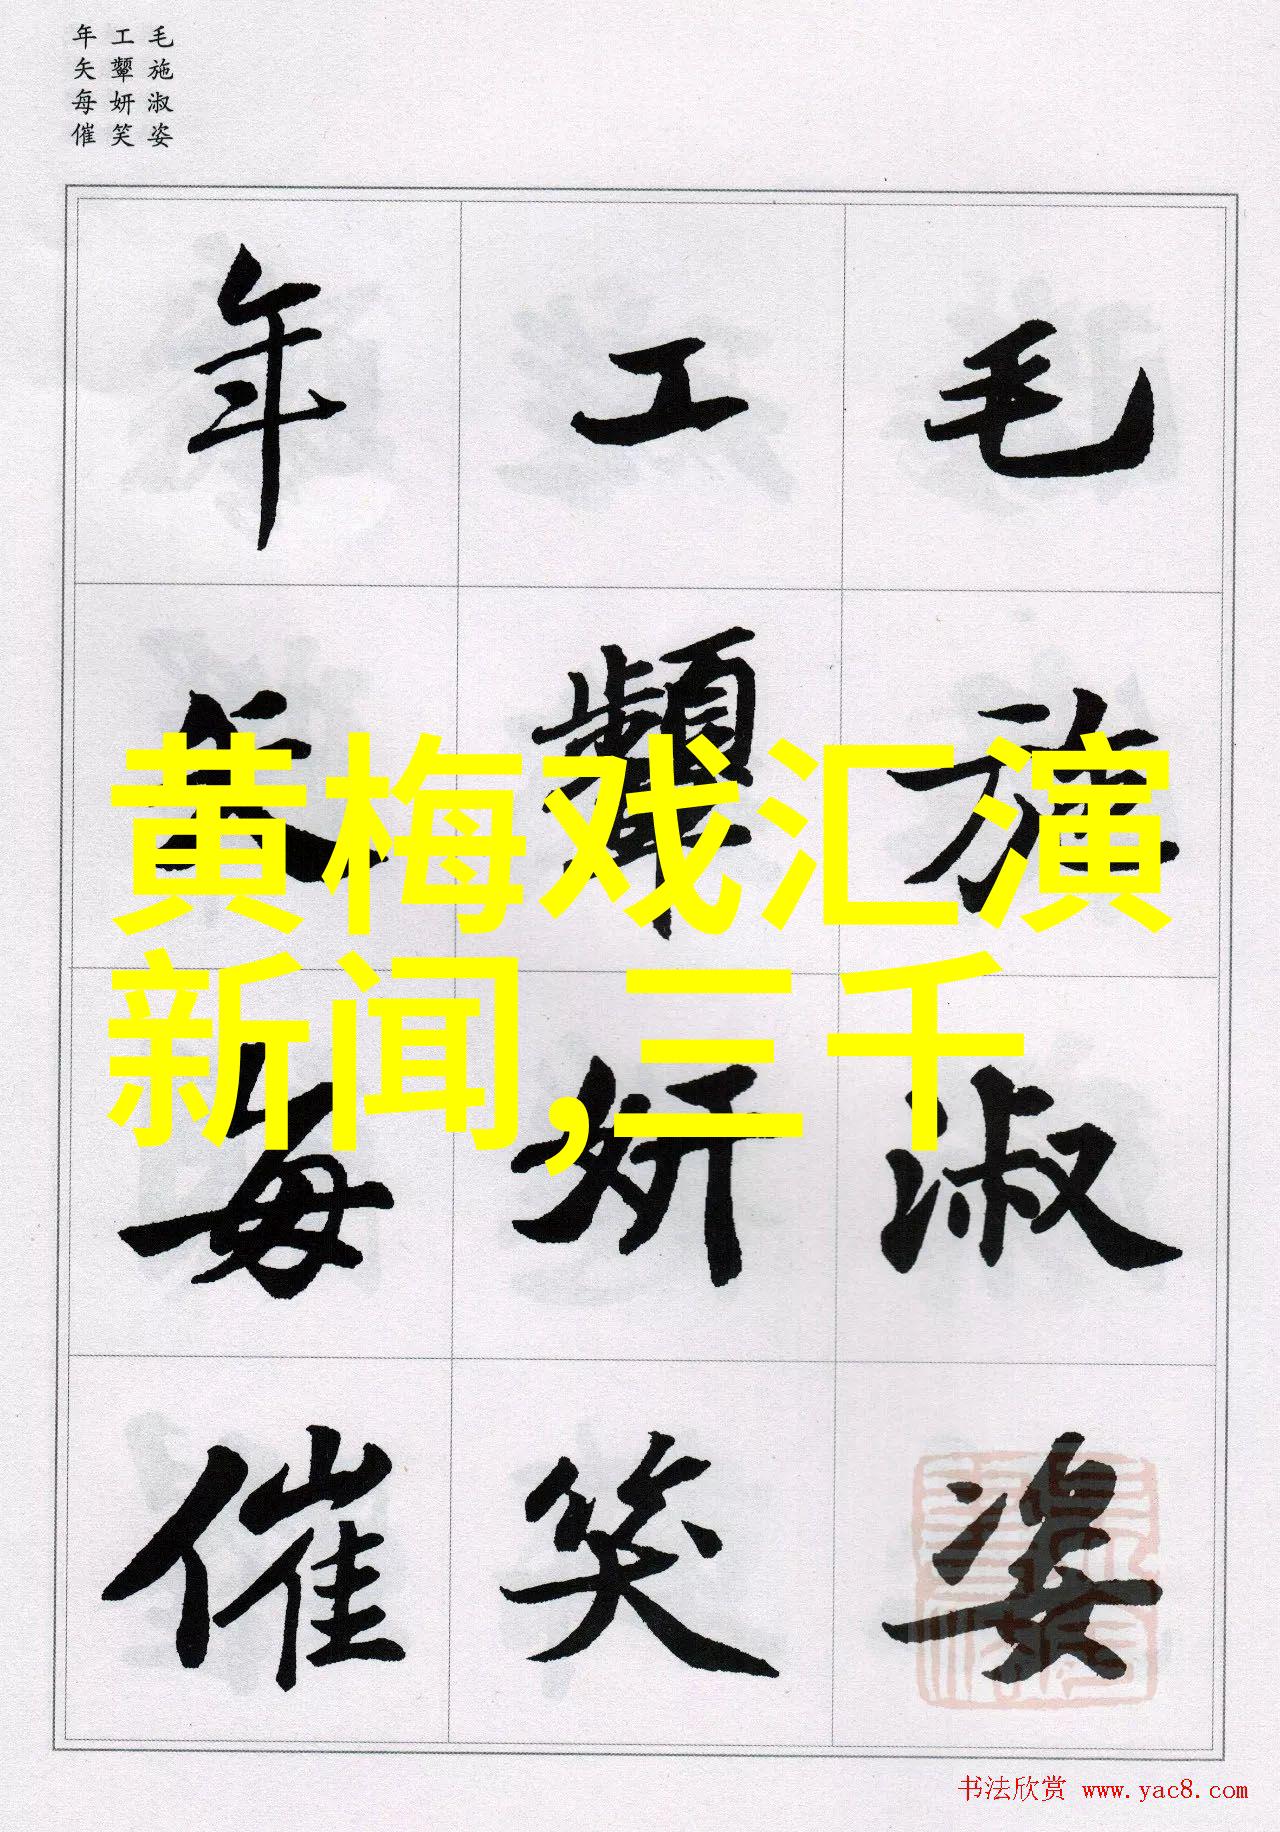 毛施淑姿
工颦妍笑
年矢每催
毛施淑姿
工颦妍笑
年矢每催
黄梅戏汇演
新闻,三千
书法欣赏 www.yac8.com